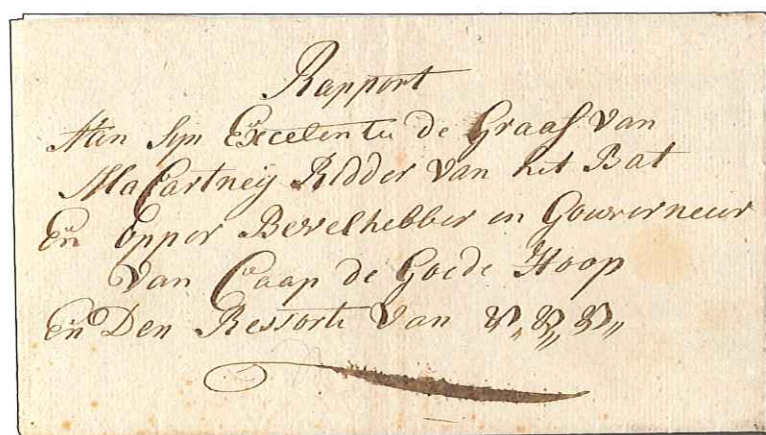 Rapport
Aan Syn Excelentie de Graaf van
MaCartneÿ Ridder van het Bat
En Opper Bevelhebber en Gouverneur
Van Caap de Goede Hoop
En Den Ressorte Van